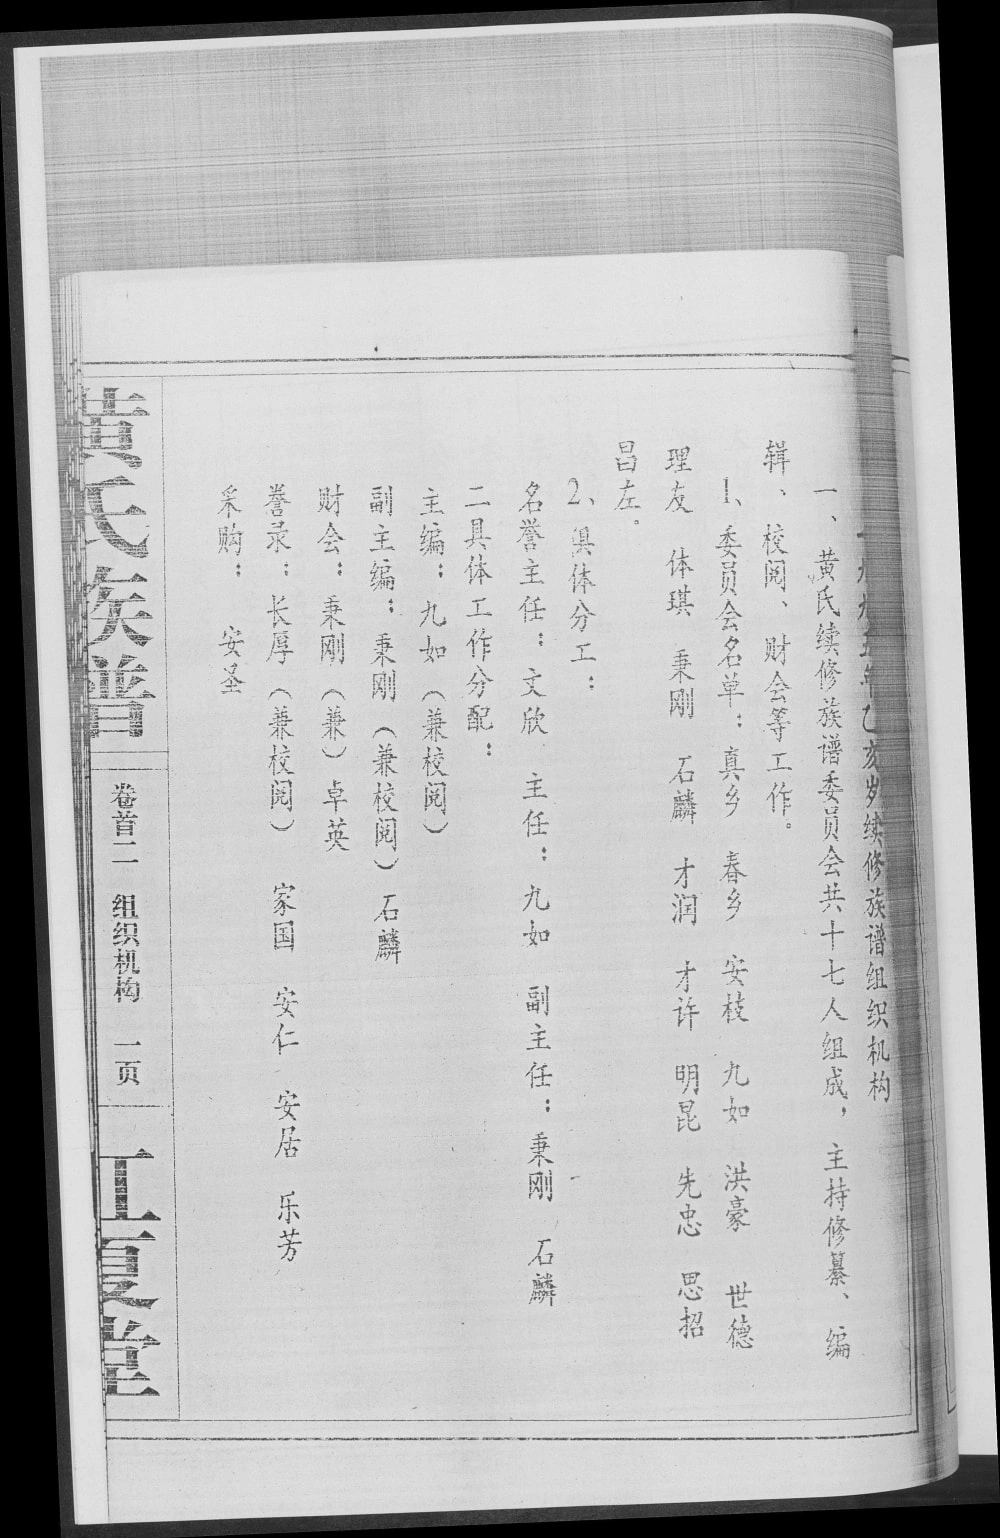 一九九五年乙亥岁续修族谱组织机构
一、黄氏续修族谱委员会共十七人组成，主持修纂、编
辑、校阅、财会等工作。
1、委员会名单：真乡 春乡 安枝 九如 洪豪 世德
理友 体琪 秉刚 石麟 才润 才许 明昆 先忠 思招
昌左。
2、俱体分工：
名誉主任：文欣 主任：九如 副主任：秉刚 石麟
二具体工作分配：
主编：九如（兼校阅）
副主编：秉刚（兼校阅）石麟
财会：秉刚（兼）卓英
誊录：长厚（兼校阅） 家国 安仁 安居 乐芳
采购： 安圣
黄氏族普
卷首二 组织机构 一页
江夏堂